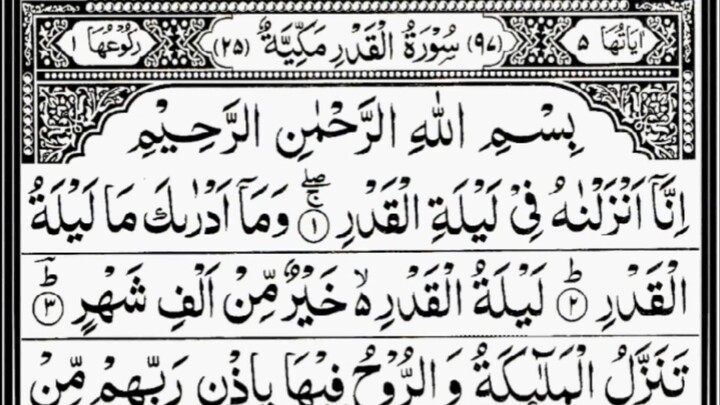 اٰيَاتُهَا ٥ (٩٧) سُوْرَةُ الْقَدْرِ مَكِّيَّةٌ (٢٥) رُكُوْعُهَا ١
بِسْمِ اللهِ الرَّحْمٰنِ الرَّحِيْمِ
اِنَّاۤ اَنْزَلْنٰهُ فِیْ لَيْلَةِ الْقَدْرِ ۚۖ ١ وَمَاۤ اَدْرٰىكَ مَا لَيْلَةُ
الْقَدْرِ ؕ ٢ لَيْلَةُ الْقَدْرِ ۙ٥ خَيْرٌ مِّنْ اَلْفِ شَهْرٍ ؕ ٣
تَنَزَّلُ الْمَلٰٓئِكَةُ وَالرُّوْحُ فِيْهَا بِاِذْنِ رَبِّهِمْ مِّنْ